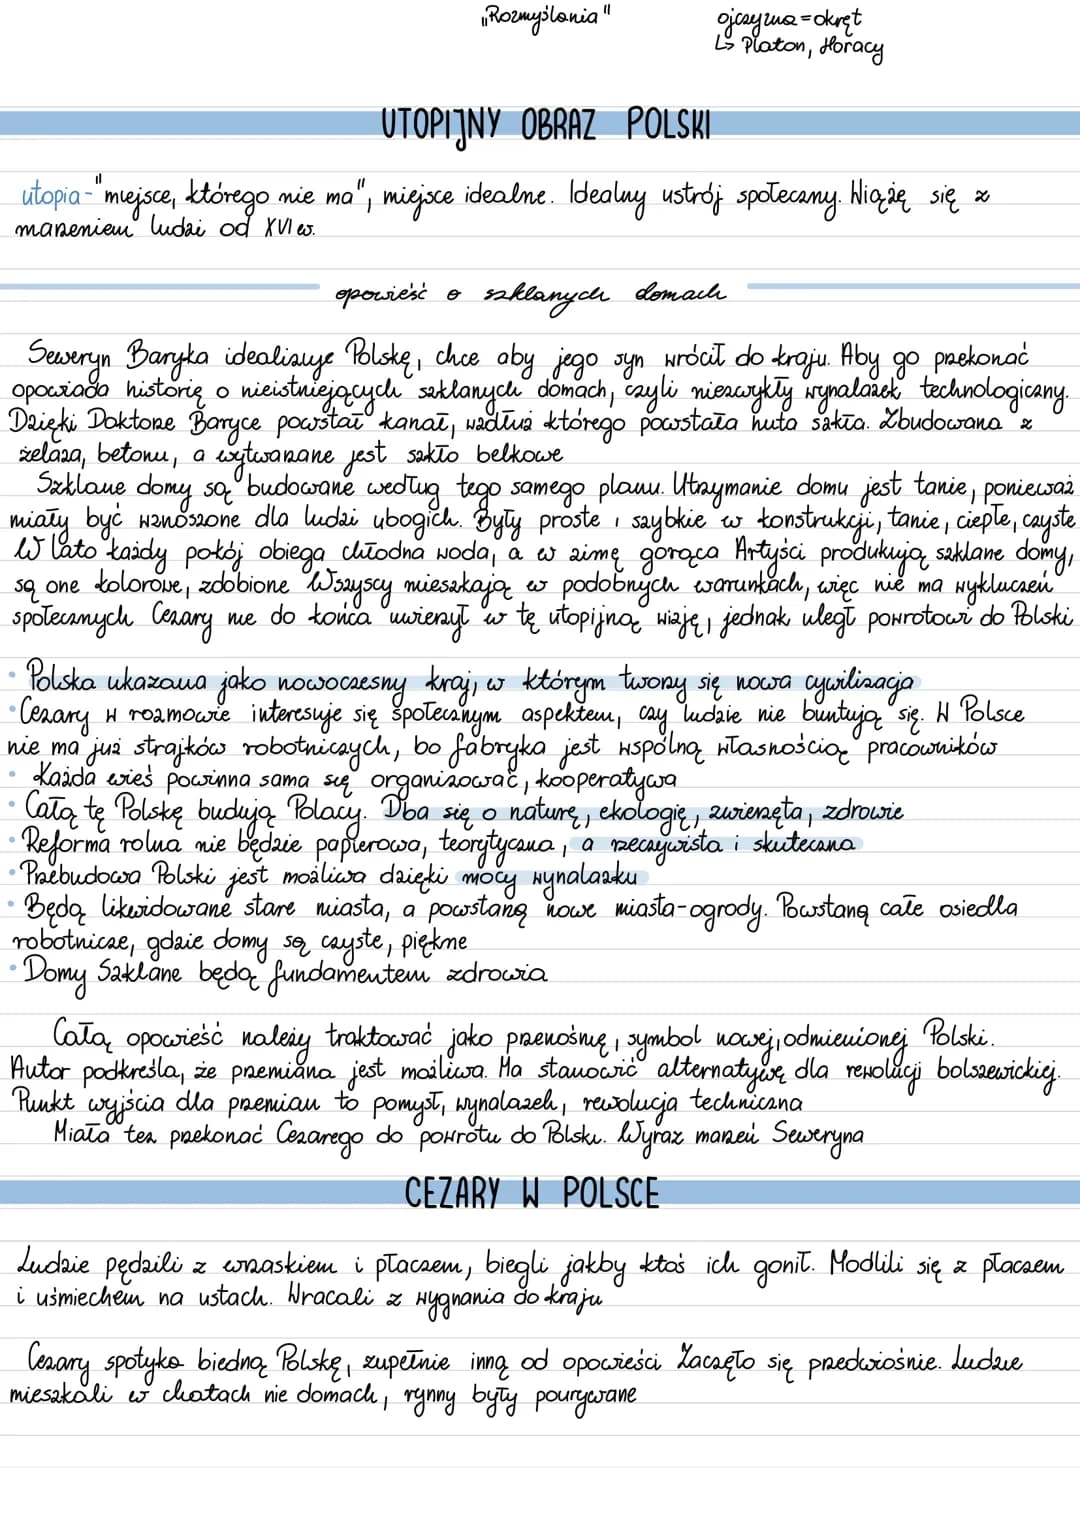 „Rozmyślania" ojczyzna=okręt
↳ Platon, Horacy
UTOPIJNY OBRAZ POLSKI
utopia-"miejsce, którego nie ma", miejsce idealne. Idealny ustrój społeczny. Wiążę się z
marzeniem ludzi od XVI w.
opowieść o szklanych domach
Seweryn Baryka idealizuje Polskę, chce aby jego syn wrócił do kraju. Aby go przekonać
opowiada historię o nieistniejących szklanych domach, czyli niezwykły wynalazek technologiczny.
Dzięki Doktorze Baryce powstał kanał, wzdłuż którego powstała huta szkła. Zbudowana z
żelaza, betonu, a wytwarzane jest szkło belkowe
Szklane domy są budowane według tego samego planu. Utrzymanie domu jest tanie, ponieważ
miały być wznoszone dla ludzi ubogich. Były proste i szybkie w konstrukcji, tanie, ciepłe, czyste
W lato każdy pokój obiega chłodna woda, a w zimę gorąca Artyści produkują szklane domy,
są one kolorowe, zdobione Wszyscy mieszkają w podobnych warunkach, więc nie ma wykluczeń
społecznych Cezary nie do końca uwierzył w tę utopijną wizję, jednak uległ powrotowi do Polski
• Polska ukazana jako nowoczesny kraj, w którym tworzy się nowa cywilizacja
• Cezary w rozmowie interesuje się społecznym aspektem, czy ludzie nie buntują się. W Polsce
nie ma już strajków robotniczych, bo fabryka jest wspólną własnością pracowników
• Każda wieś powinna sama się organizować, kooperatywa
• Całą tę Polskę budują Polacy. Dba się o naturę, ekologię, zwierzęta, zdrowie
• Reforma rolna nie będzie papierowa, teorytyczna, a rzeczywista i skuteczna
• Przebudowa Polski jest możliwa dzięki mocy wynalazku
• Będą likwidowane stare miasta, a powstaną nowe miasta-ogrody. Powstaną całe osiedla
robotnicze, gdzie domy są czyste, piękne
• Domy Szklane będą fundamentem zdrowia
Całą opowieść należy traktować jako przenośnię, symbol nowej, odmienionej Polski.
Autor podkreśla, że przemiana jest możliwa. Ma stanowić alternatywę dla rewolucji bolszewickiej.
Punkt wyjścia dla przemian to pomysł, wynalazek, rewolucja techniczna
Miała też przekonać Cezarego do powrotu do Polski. Wyraz marzeń Seweryna
CEZARY W POLSCE
Ludzie pędzili z wrzaskiem i płaczem, biegli jakby ktoś ich gonił. Modlili się z płaczem
i uśmiechem na ustach. Wracali z wygnania do kraju
Cezary spotyka biedną Polskę, zupełnie inną od opowieści Zaczęło się przedwiośnie. Ludzie
mieszkali w chatach nie domach, rynny były pourywane